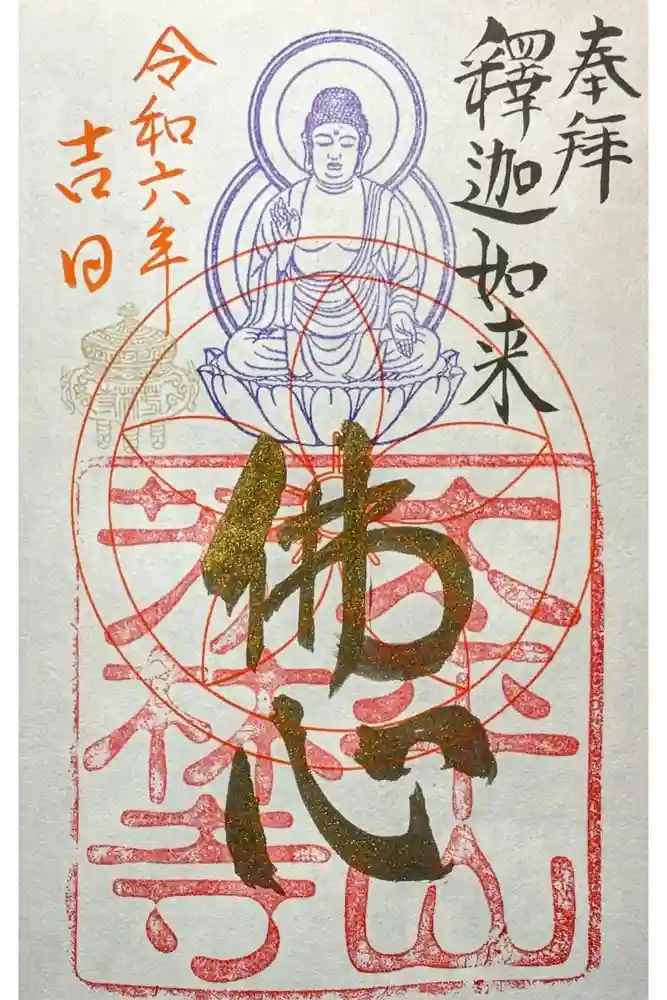 奉拜
釋迦如来
佛心
令和六年
吉日